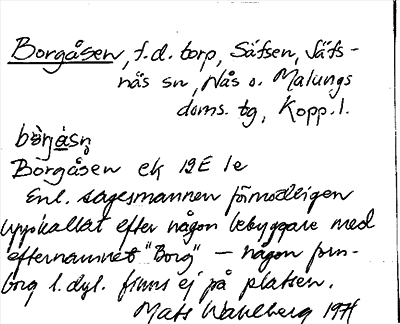 Borgåsen, f.d. torp, Säfsen, Säfs-
näs sn, Nås o. Malungs
doms. tg, Kopp. l.
Borgåsen ek 12E 1e
Enl. sagesmannen förmodligen
uppkallat efter någon bebyggare med
efternamnet "Borg" – någon forn-
borg l. dyl. finns ej på platsen.
Mats Wahlberg 1971